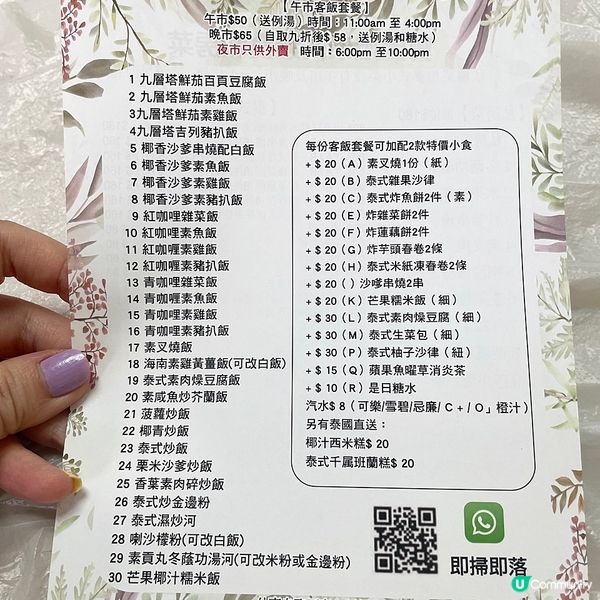 【午市客飯套餐】
午市$50（送例湯）時間：11:00am 至 4:00pm
晚市$65（自取九折後$ 58，送例湯和糖水）
夜市只供外賣 時間：6:00pm 至10:00pm
1 九層塔鮮茄百頁豆腐飯
2 九層塔鮮茄素魚飯
3九層塔鮮茄素雞飯
4九層塔吉列豬扒飯
5 椰香沙爹串燒配白飯
6 椰香沙爹素魚飯
7 椰香沙爹素雞飯
8 椰香沙爹素豬扒飯
9 紅咖哩雜菜飯
10 紅咖哩素魚飯
11 紅咖喱素雞飯
12 紅咖喱素豬扒飯
13 青咖哩雜菜飯
14 青咖喱素魚飯
15 青咖哩素雞飯
16 青咖哩素豬扒飯
17 素叉燒飯
18 海南素雞黃薑飯(可改白飯)
19 泰式素肉燥豆腐飯
20 素咸魚炒芥蘭飯
21 菠蘿炒飯
22 椰青炒飯
23 泰式炒飯
24 栗米沙爹炒飯
25 香葉素肉碎炒飯
26 泰式炒金邊粉
27 泰式濕炒河
28 喇沙檬粉(可改白飯)
29 素貢丸冬蔭功湯河(可改米粉或金邊粉)
30 芒果椰汁糯米飯
每份客飯套餐可加配2款特價小食
+ $ 20（A）素叉燒1份（紙）
+ $ 20（B）泰式雜果沙律
+ $ 20（C）泰式炸魚餅2件（素）
+ $ 20（E）炸雜菜餅2件
+ $ 20（F）炸蓮藕餅2件
+ $ 20（G）炸芋頭春卷2條
+ $ 20（H）泰式米紙凍春卷2條
+ $ 20（）沙嗲串燒2串
+ $ 20（K）芒果糯米飯（細）
+ $ 30（L）泰式素肉燥豆腐（細）
+ $ 30（M）泰式生菜包（細）
+ $ 30（P）泰式柚子沙律（紐）
+ $ 15（Q）蘋果魚曜草消炎茶
+ $ 10（R）是日糖水
汽水$ 8（可樂/雪碧/忌廉/ C + / O」橙汁）
另有泰國直送：
椰汁西米糕$ 20
泰式千属班蘭糕$ 20
即掃即落
U Community